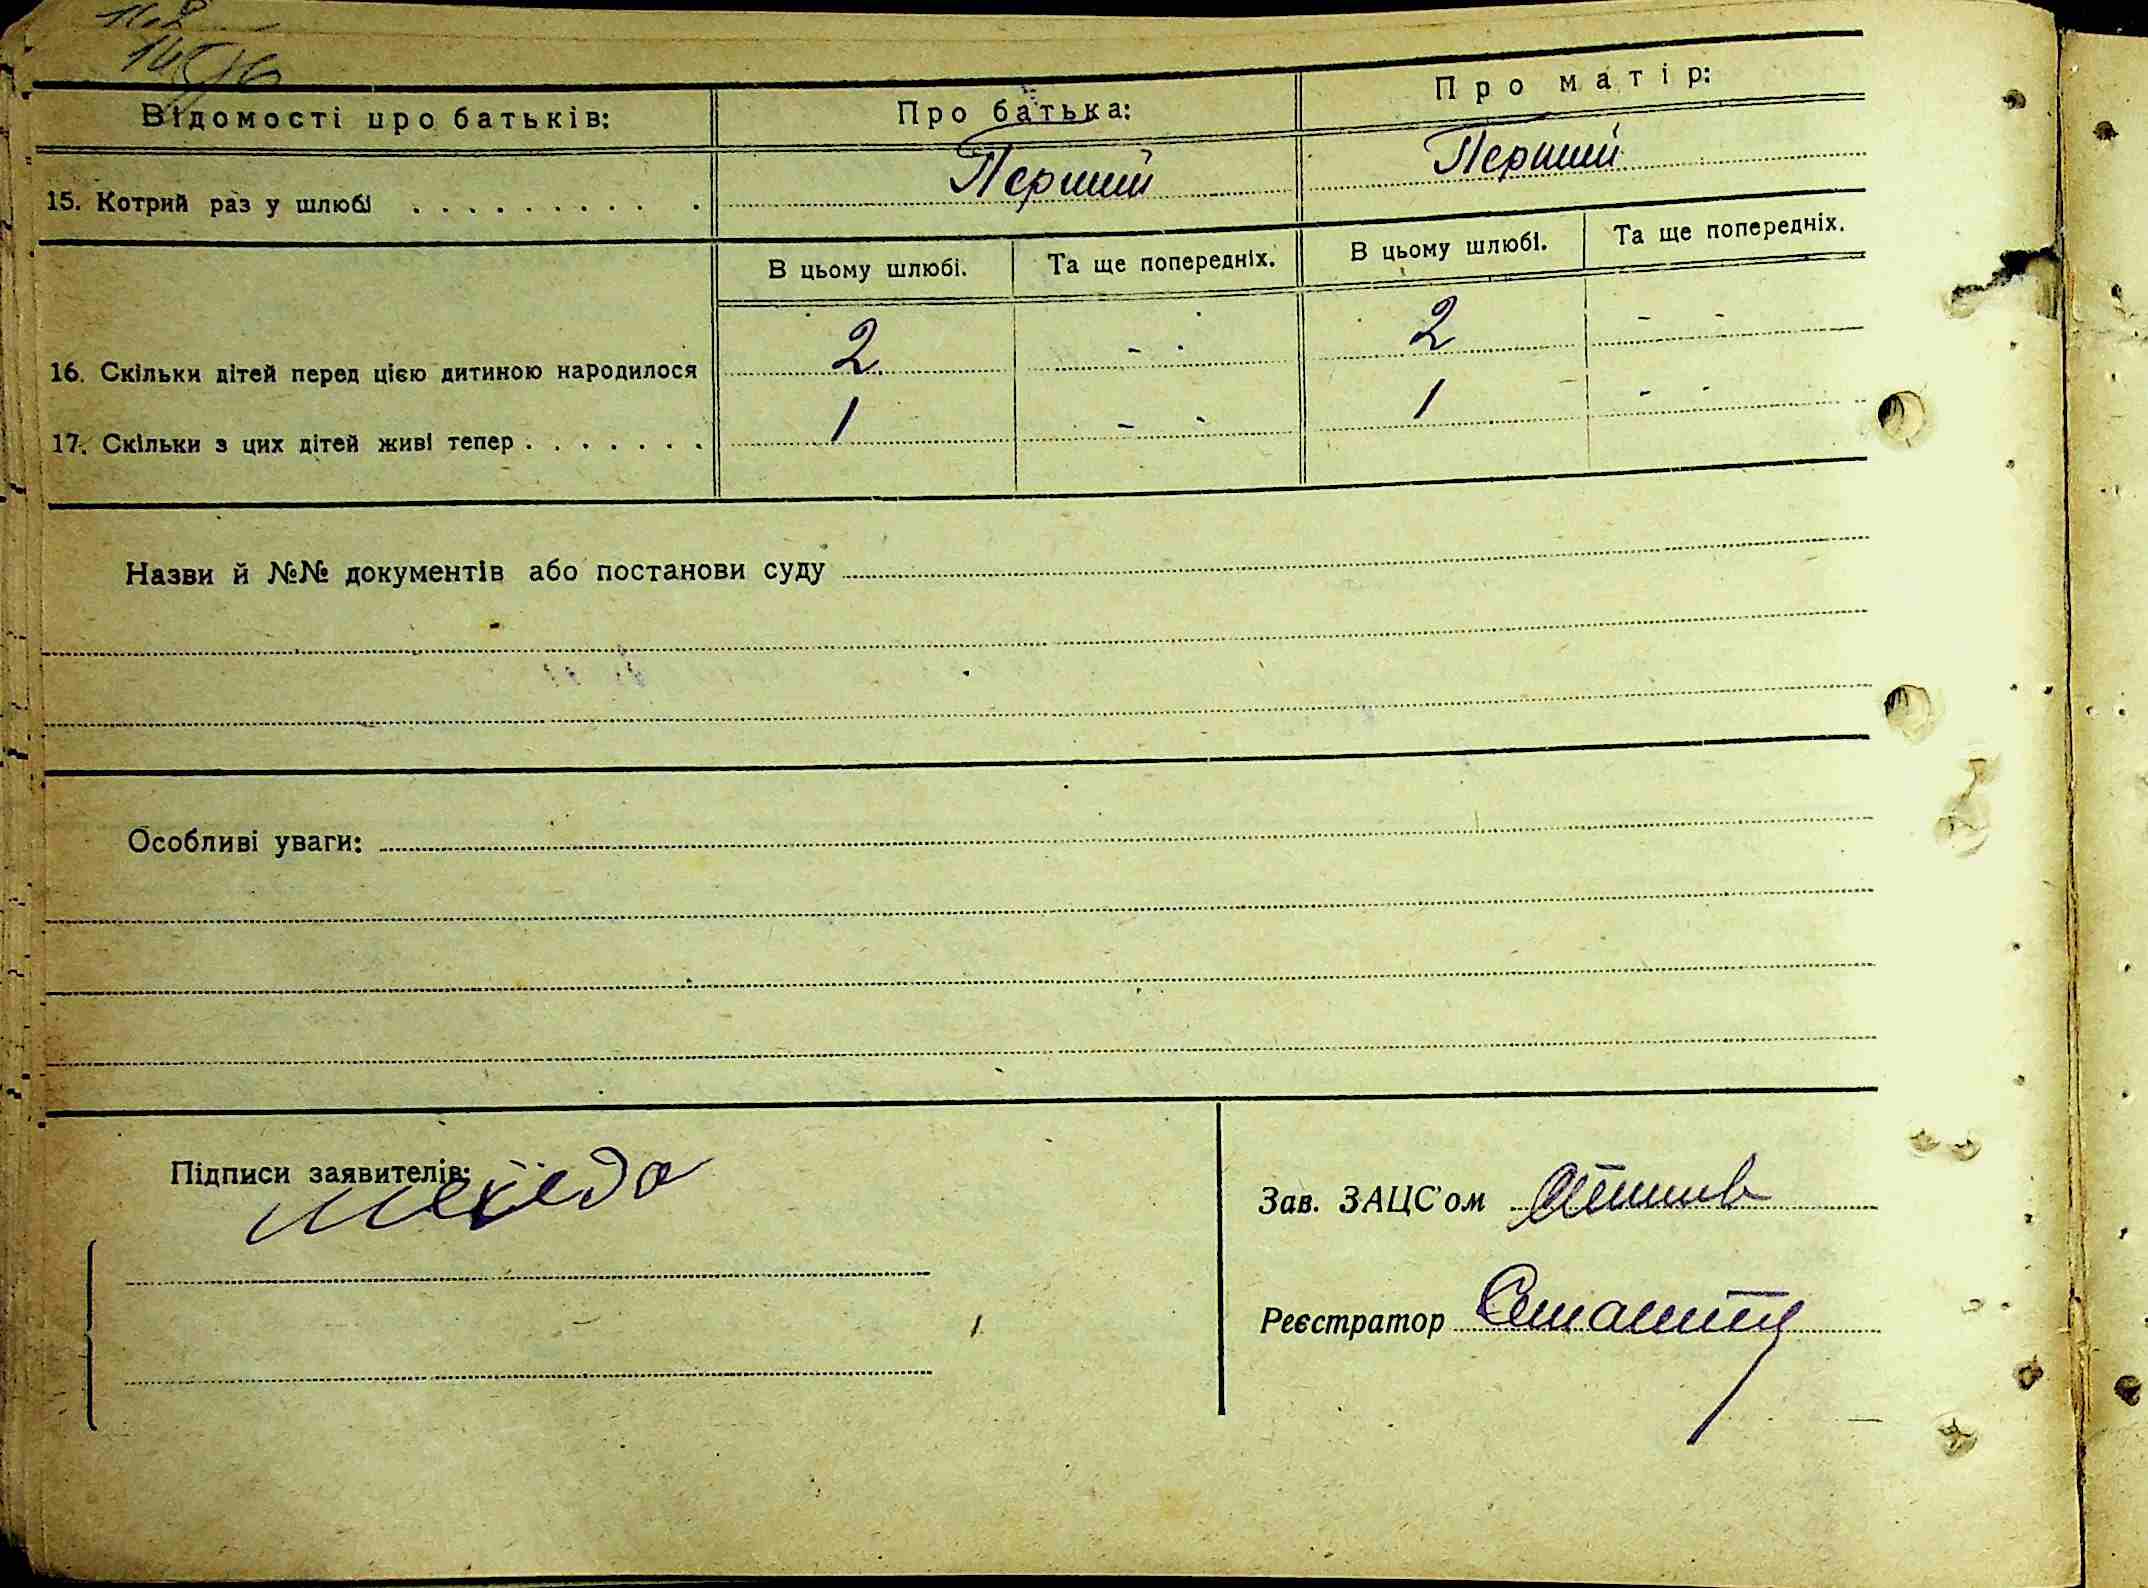 Відомості про батьків: Про батька: Про матір:
15. Котрий раз у шлюбі . . . . . . . . . . Перший Перший
В цьому шлюбі. Та ще попередніх. В цьому шлюбі. Та ще попередніх.
16. Скільки дітей перед цією дитиною народилося 2 - - 2 - -
17. Скільки з цих дітей живі тепер . . . . . . . 1 - - 1 - -
Назви й №№ документів або постанови суду
Особливі уваги:
Підписи заявителів:
Зав. ЗАЦС'ом
Реєстратор